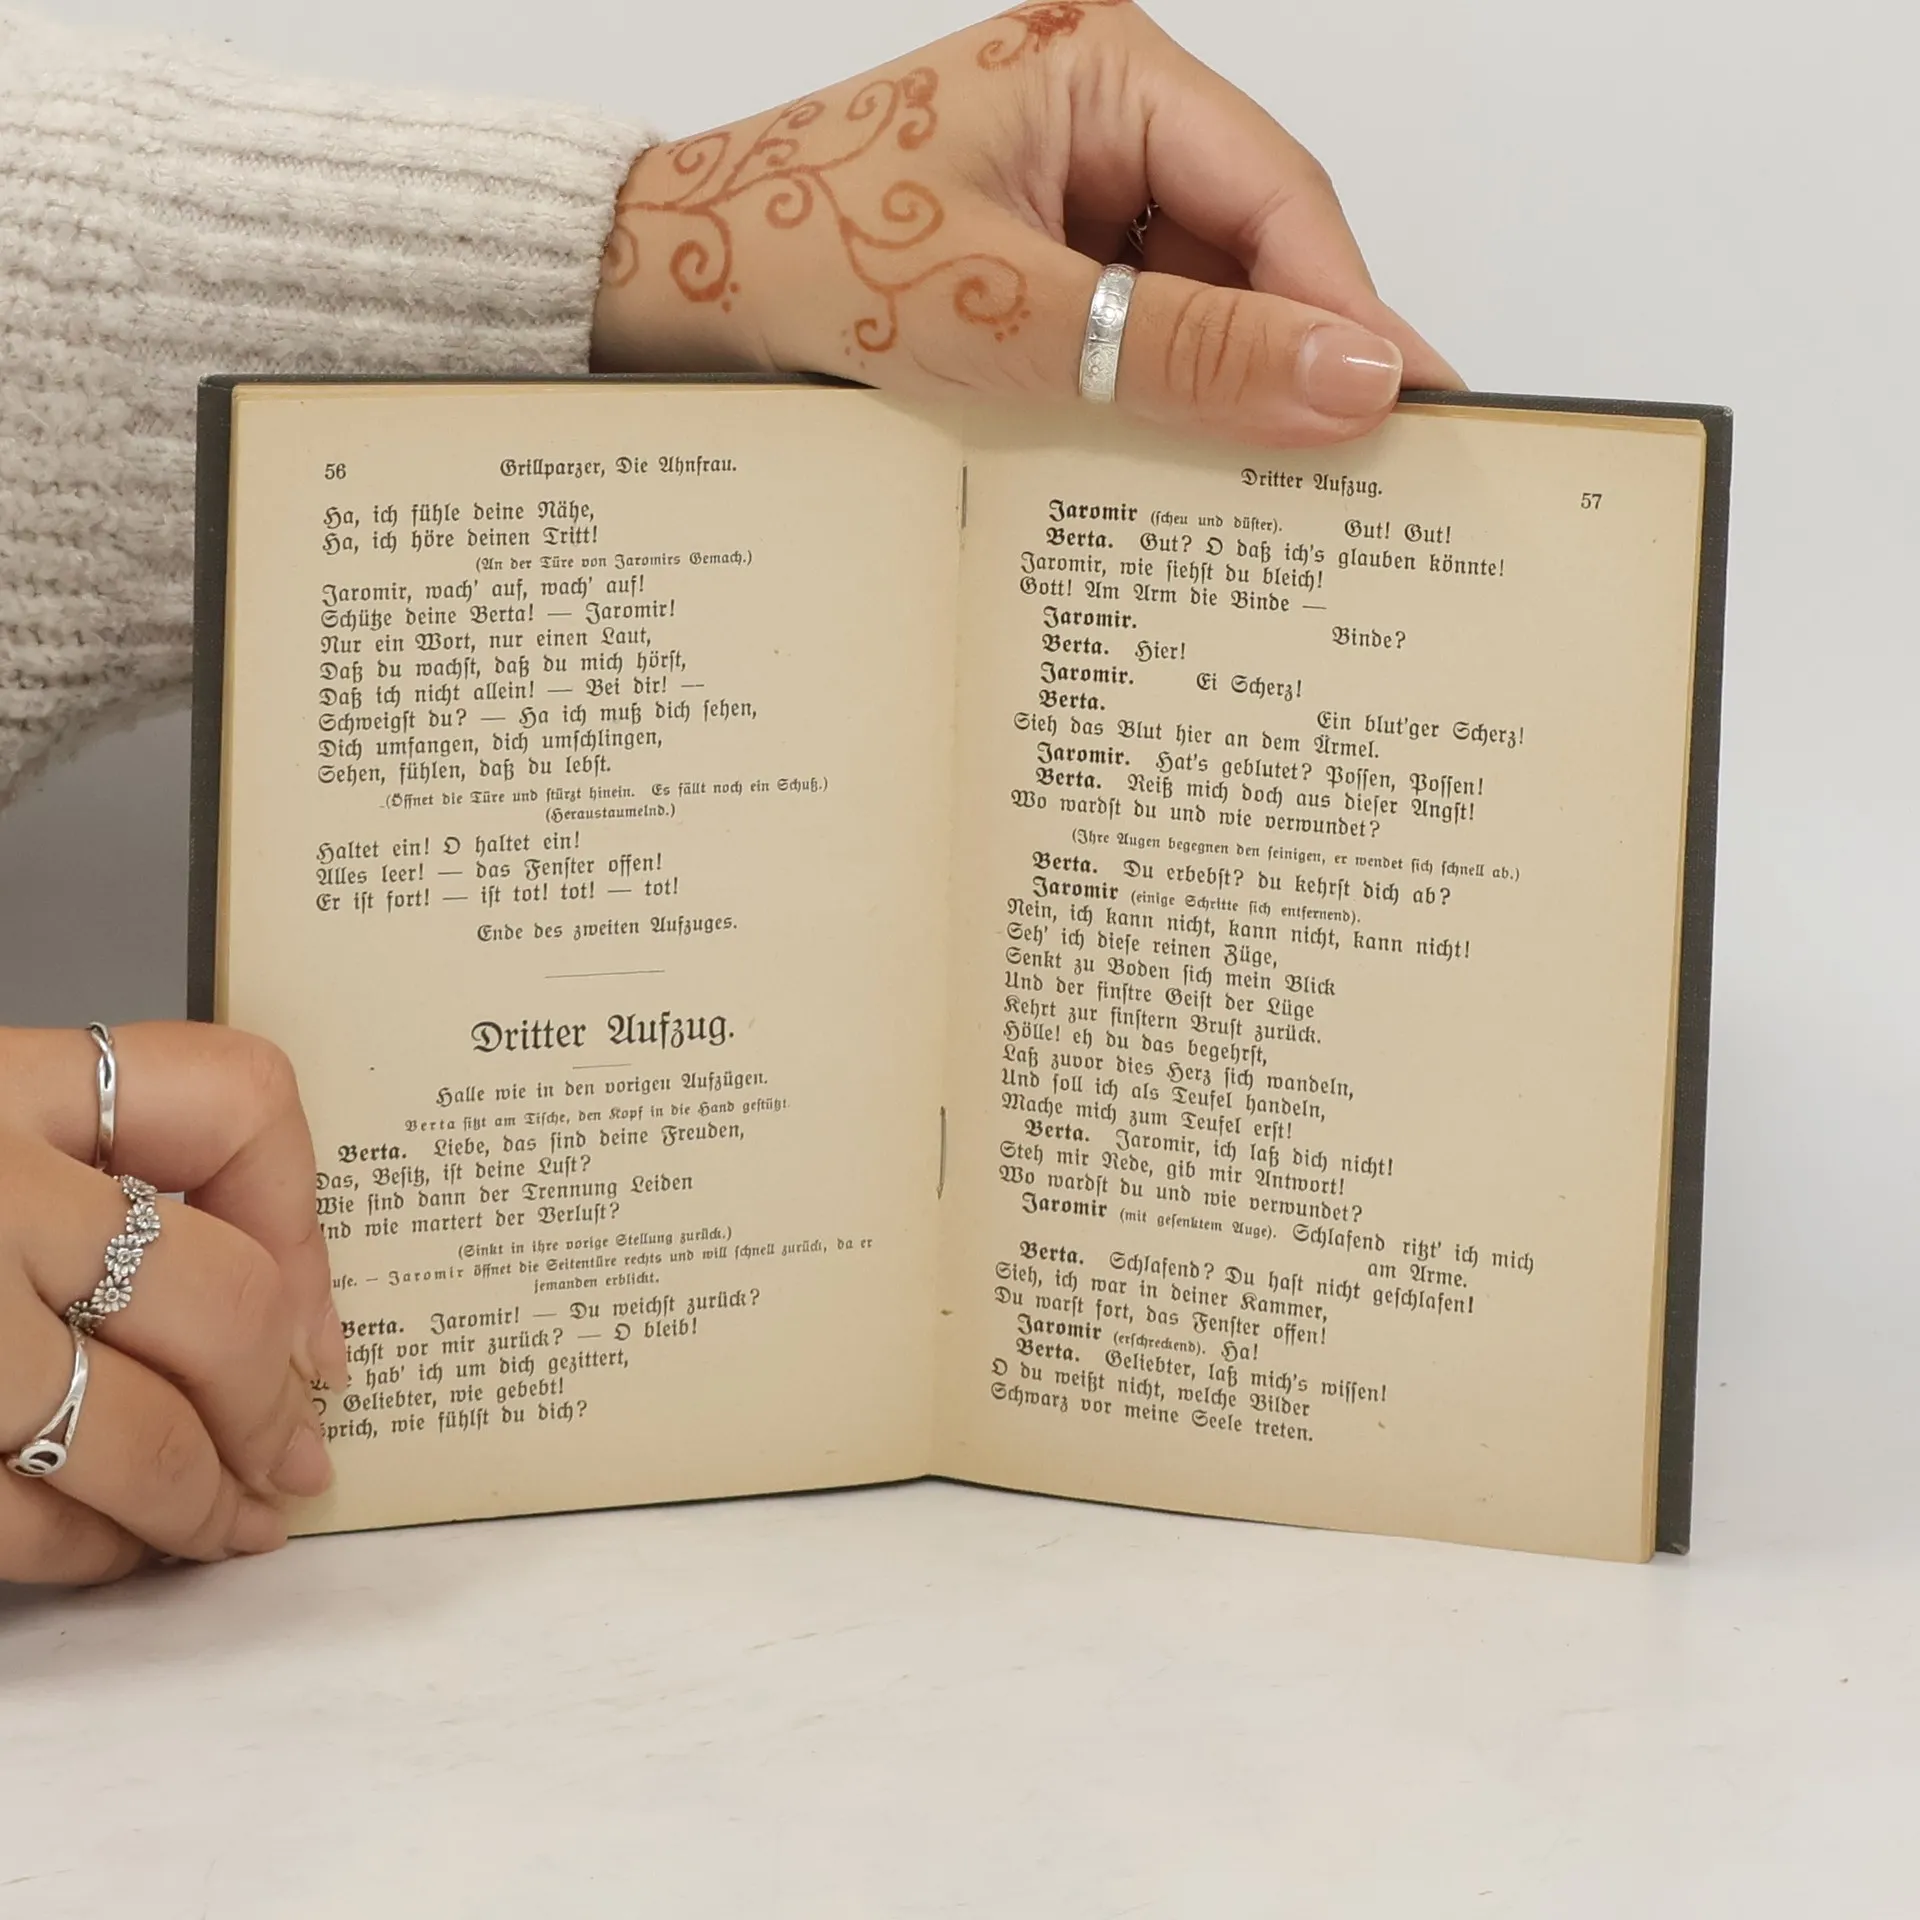 56
Grillparzer, Die Ahnfrau.
Ha, ich fühle deine Nähe,
Ha, ich höre deinen Tritt!
(An der Türe von Jaromirs Gemach.)
Jaromir, wach' auf, wach' auf!
Schütze deine Berta! — Jaromir!
Nur ein Wort, nur einen Laut,
Daß du wachst, daß du mich hörst,
Daß ich nicht allein! — Bei dir! —
Schweigst du? — Ha ich muß dich sehen,
Dich umfangen, dich umschlingen,
Sehen, fühlen, daß du lebst.
(Öffnet die Türe und stürzt hinein. Es fällt noch ein Schuß.)
(Heraustaumelnd.)
Haltet ein! O haltet ein!
Alles leer! — das Fenster offen!
Er ist fort! — ist tot! tot! — tot!
Ende des zweiten Aufzuges.
Dritter Aufzug.
Halle wie in den vorigen Aufzügen.
Berta sitzt am Tische, den Kopf in die Hand gestützt.
Berta. Liebe, das sind deine Freuden,
Das, Besitz, ist deine Lust?
Wie sind dann der Trennung Leiden
Und wie martert der Verlust?
(Sinkt in ihre vorige Stellung zurück.)
use. — Jaromir öffnet die Seitentüre rechts und will schnell zurück, da er
jemanden erblickt.
Berta. Jaromir! — Du weichst zurück?
ichst vor mir zurück? — O bleib!
hab' ich um dich gezittert,
O Geliebter, wie gebebt!
Sprich, wie fühlst du dich?
Dritter Aufzug.
57
Jaromir (scheu und düster). Gut! Gut!
Berta. Gut? O daß ich's glauben könnte!
Jaromir, wie siehst du bleich!
Gott! Am Arm die Binde —
Jaromir. Binde?
Berta. Hier!
Jaromir. Ei Scherz!
Berta. Ein blut'ger Scherz!
Sieh das Blut hier an dem Ärmel.
Jaromir. Hat's geblutet? Possen, Possen!
Berta. Reiß mich doch aus dieser Angst!
Wo wardst du und wie verwundet?
(Ihre Augen begegnen den seinigen, er wendet sich schnell ab.)
Berta. Du erbebst? du kehrst dich ab?
Jaromir (einige Schritte sich entfernend).
Nein, ich kann nicht, kann nicht, kann nicht!
Seh' ich diese reinen Züge,
Senkt zu Boden sich mein Blick
Und der finstre Geist der Lüge
Kehrt zur finstern Brust zurück.
Hölle! eh du das begehrst,
Laß zuvor dies Herz sich wandeln,
Und soll ich als Teufel handeln,
Mache mich zum Teufel erst!
Berta. Jaromir, ich laß dich nicht!
Steh mir Rede, gib mir Antwort!
Wo wardst du und wie verwundet?
Jaromir (mit gesenktem Auge). Schlafend ritzt' ich mich
am Arme.
Berta. Schlafend? Du hast nicht geschlafen!
Sieh, ich war in deiner Kammer,
Du warst fort, das Fenster offen!
Jaromir (erschreckend). Ha!
Berta. Geliebter, laß mich's wissen!
O du weißt nicht, welche Bilder
Schwarz vor meine Seele treten.